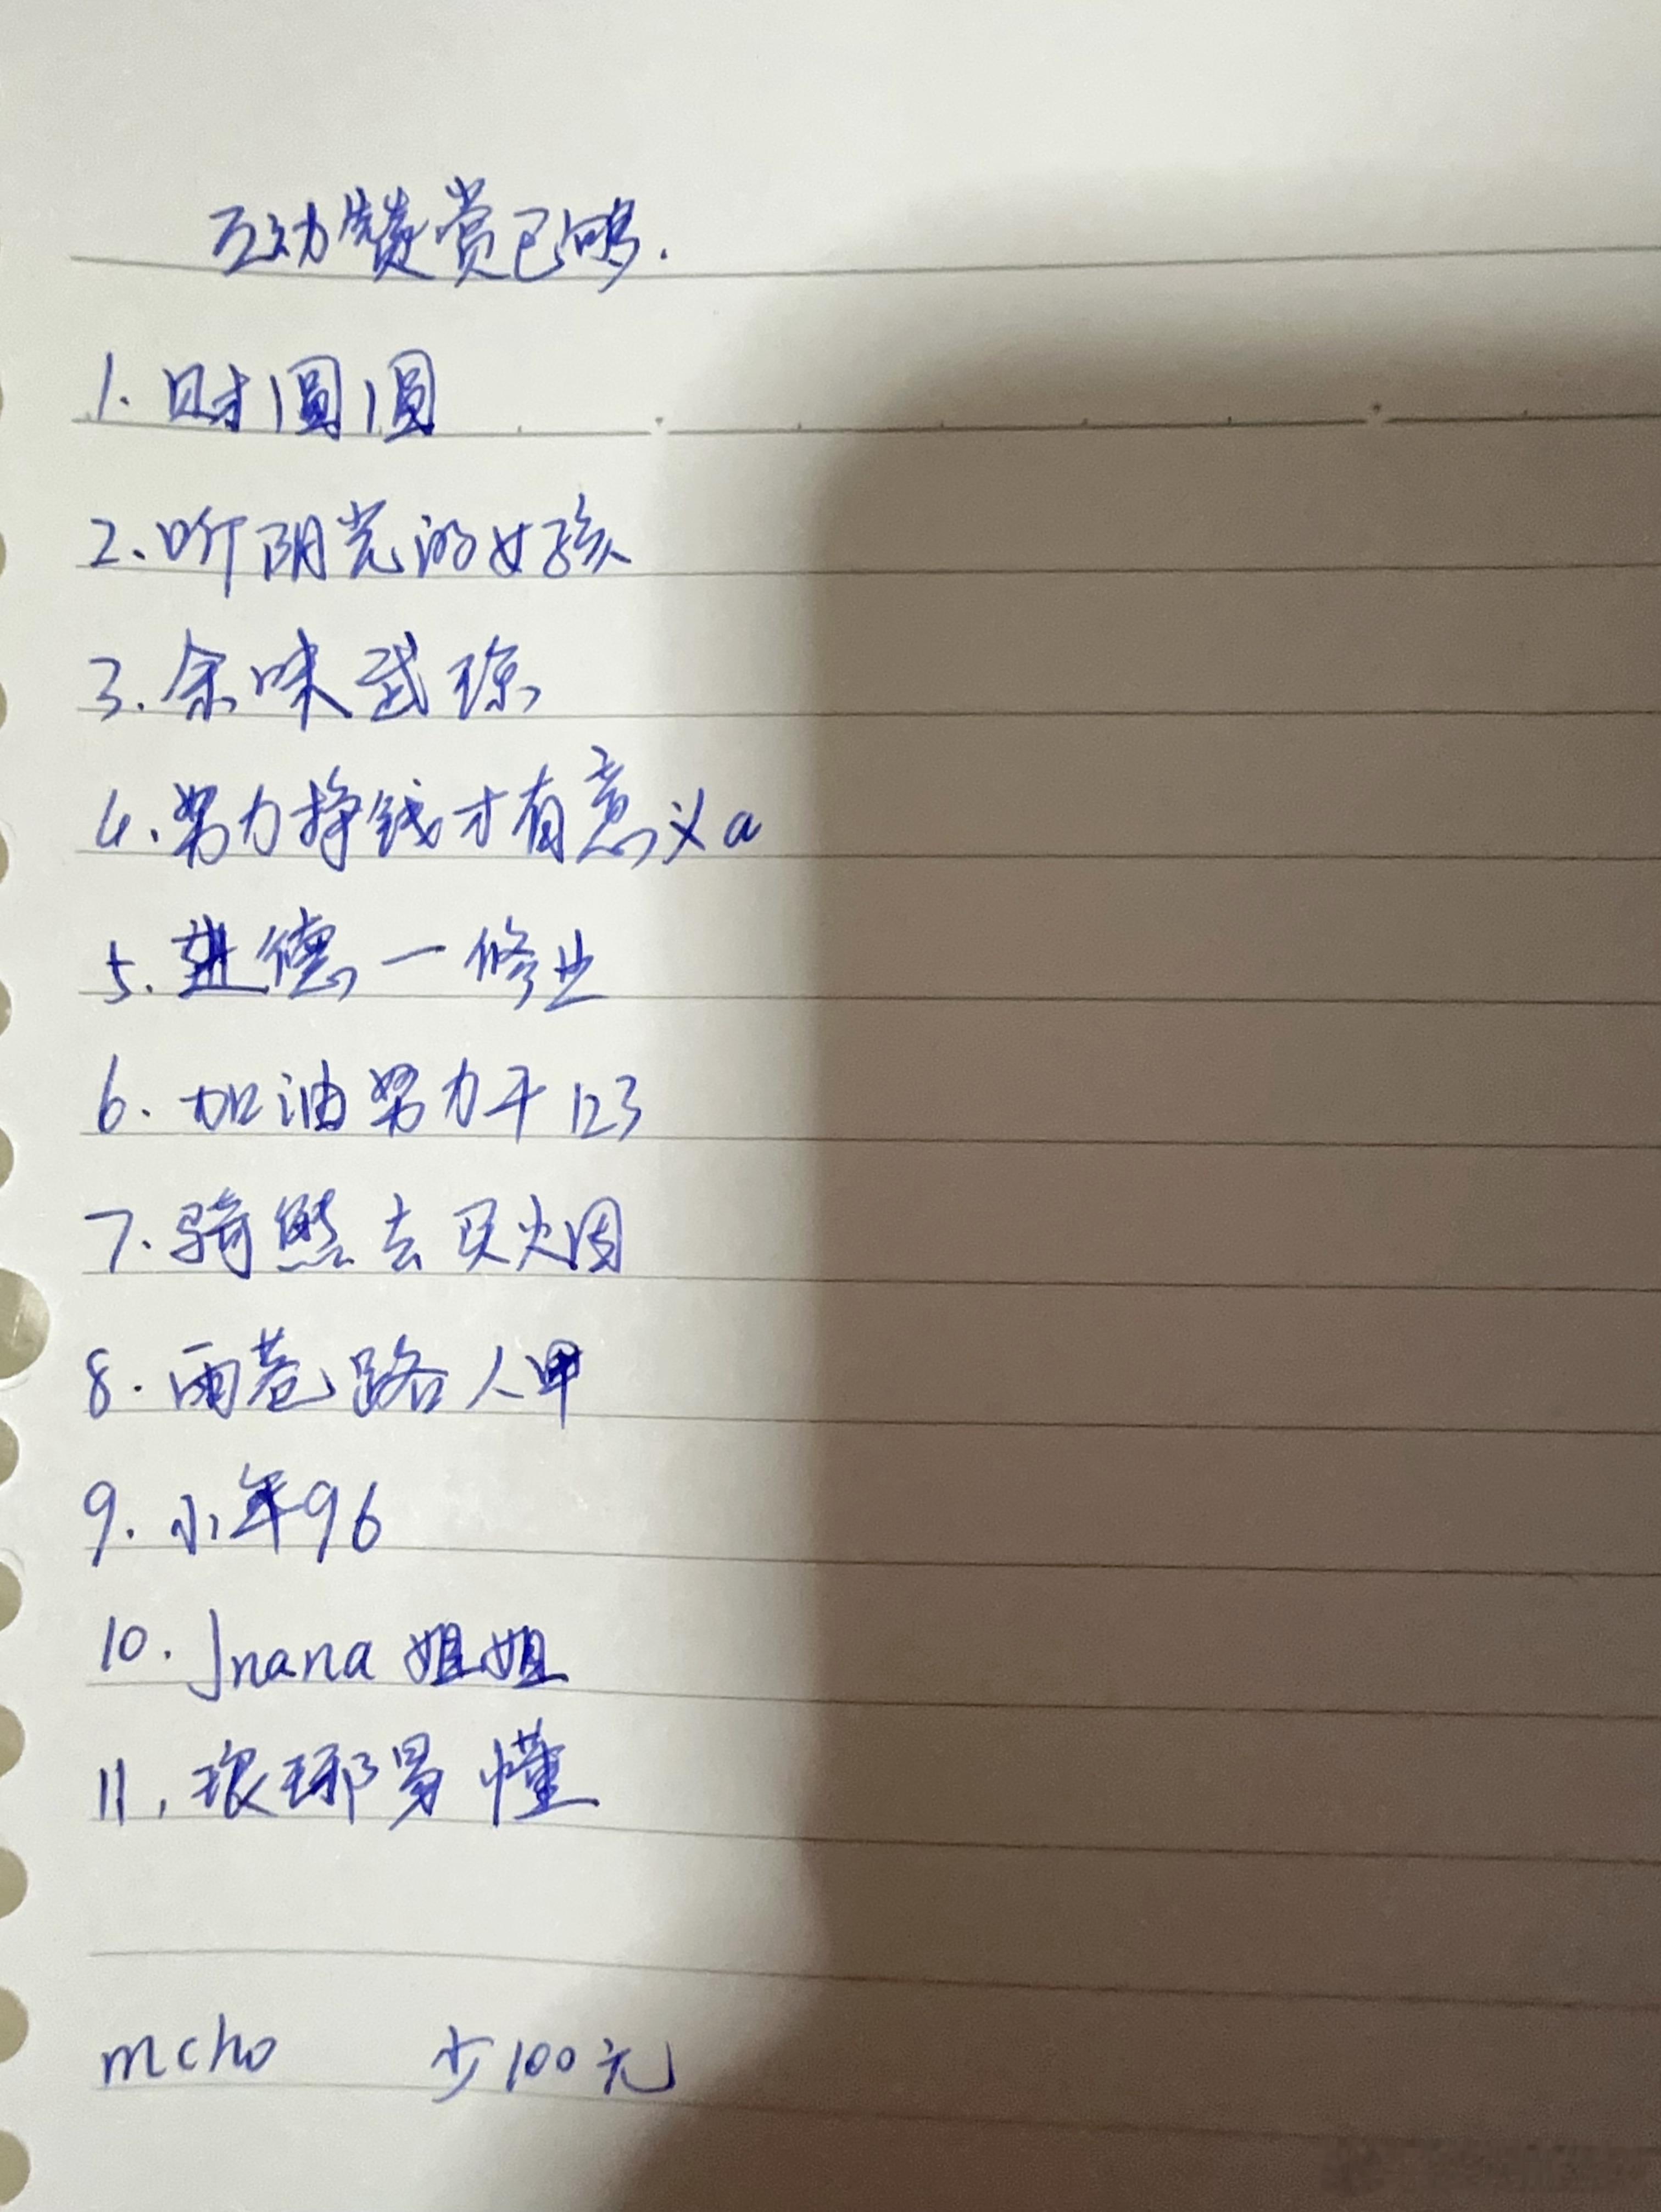 互动赞赏已够.
1. 财圆圆
2. 听阴光的女孩
3. 余味武琼
4. 努力挣钱才有意义a
5. 进德一修业
6. 加油努力干123
7. 骑熊去灭火
8. 雨巷路人甲
9. 小年96
10. Jnana 姐姐
11. 琅琊易懂
mcho 少100元